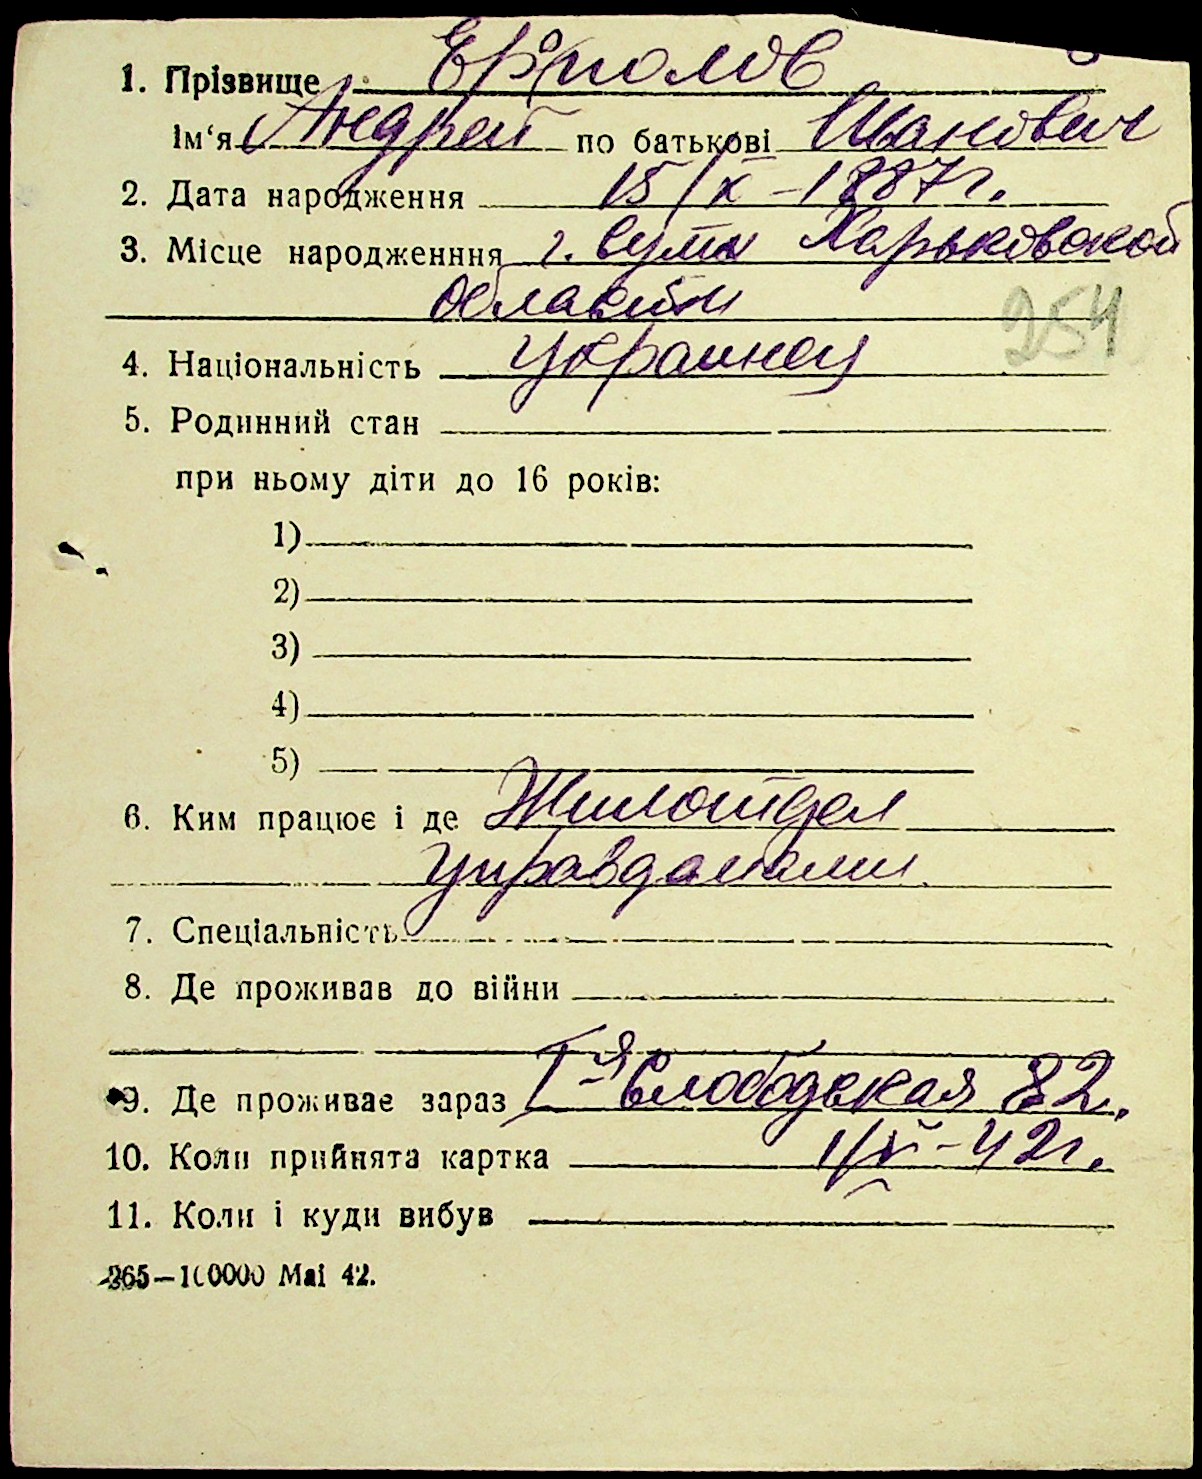 1. Прізвище Ерполов
Ім‘я Андрей по батькові Иванович
2. Дата народження 15/X – 1887 г.
3. Місце народженння г. Сумы Харьковской
области
254
4. Національність Украинец
5. Родинний стан
при ньому діти до 16 років:
1)
2)
3)
4)
5)
6. Ким працює і де Жилотдел
управдомами.
7. Спеціальність
8. Де проживав до війни
9. Де проживає зараз I-я Слободская 82.
10. Коли прийнята картка 1/VI – 42 г.
11. Коли і куди вибув
265—100000 Mai 42.